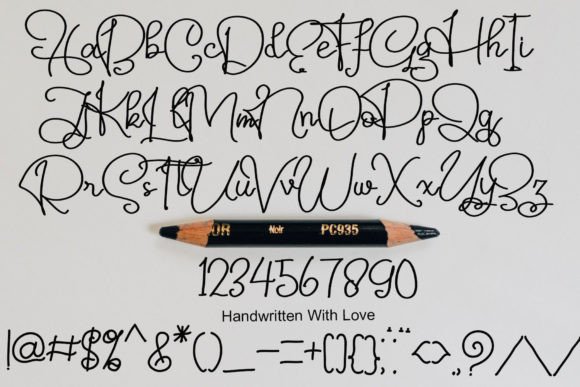 AaBbCcDdEeFfGgHhIi
JjKkLlMmNnOoPpQq
RrSsTtUuVvWwXxYyZz
OR Noir PC935
1234567890
Handwritten With Love
!@#$%^&*()_-=+[]{};:'"<>.,?/\/